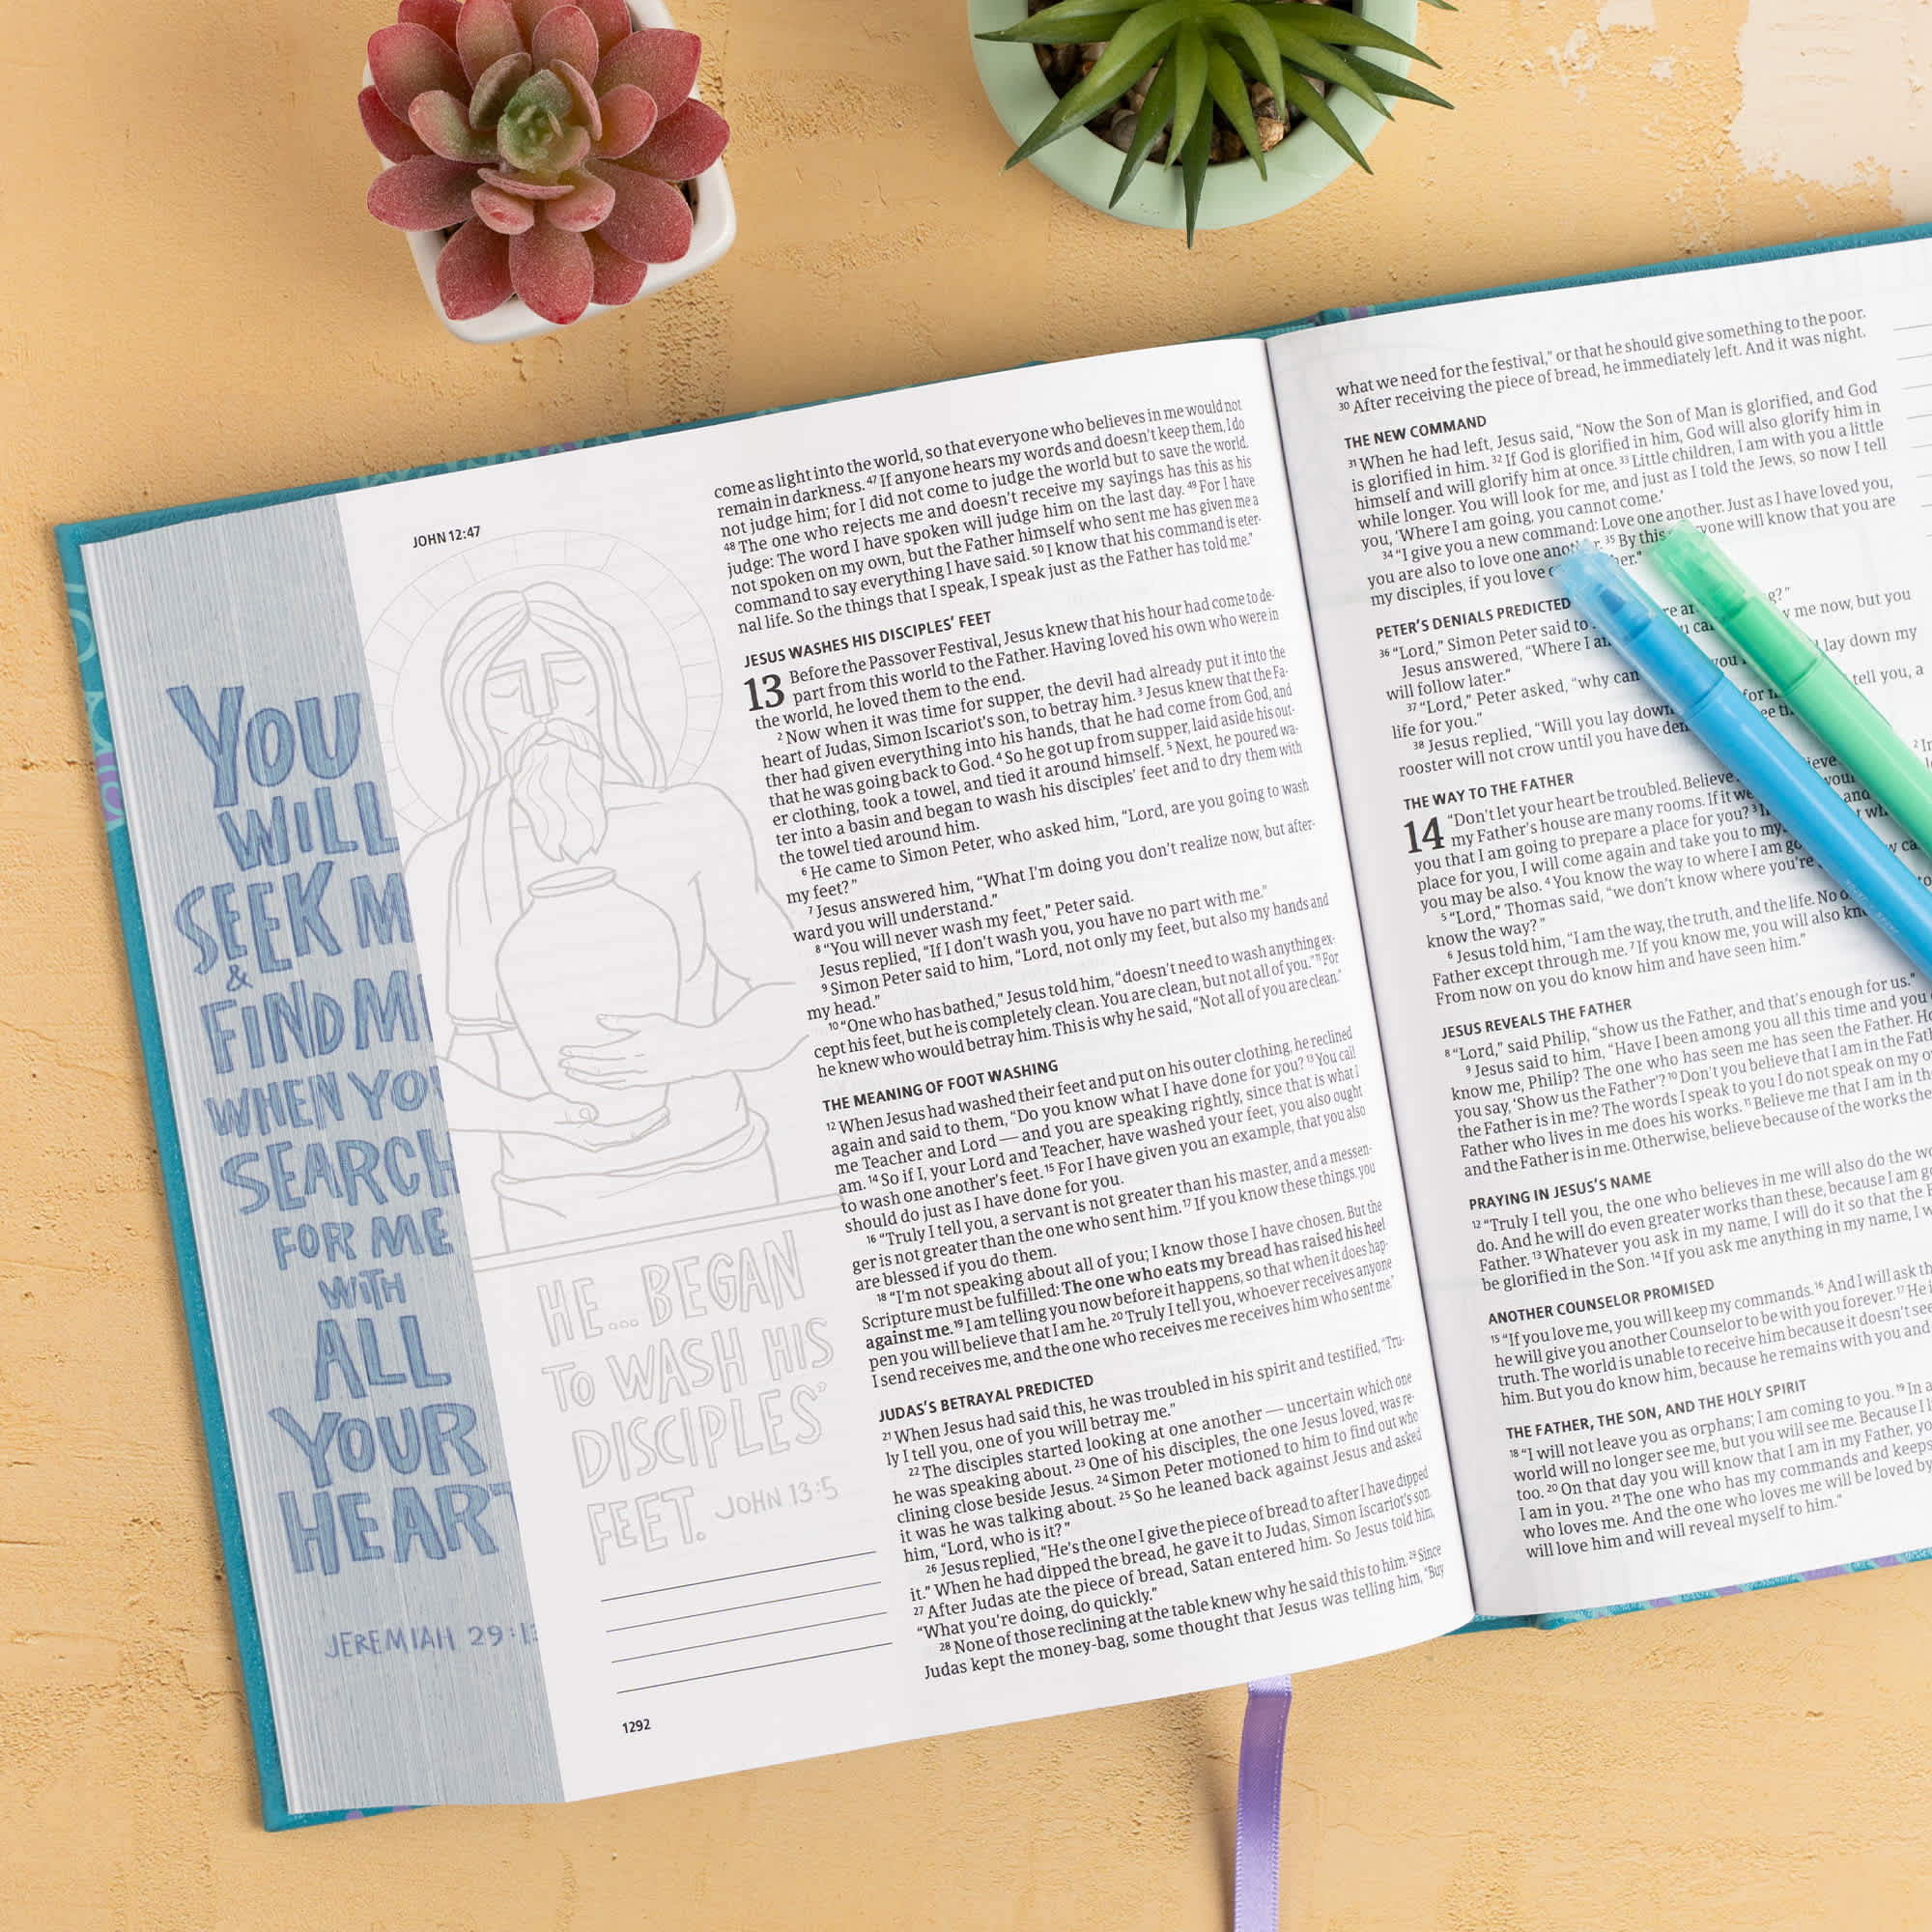 YOU
WILL
SEEK M
&
FIND M
WHEN YO
SEARCH
FOR ME
WITH
ALL
YOUR
HEART
JEREMIAH 29:13
JOHN 12:47
HE... BEGAN
TO WASH HIS
DISCIPLES'
FEET. JOHN 13:5
1292
come as light into the world, so that everyone who believes in me would not
remain in darkness. 47 If anyone hears my words and doesn't keep them, I do
not judge him; for I did not come to judge the world but to save the world.
48 The one who rejects me and doesn't receive my sayings has this as his
judge: The word I have spoken will judge him on the last day. 49 For I have
not spoken on my own, but the Father himself who sent me has given me a
command to say everything I have said. 50 I know that his command is eter-
nal life. So the things that I speak, I speak just as the Father has told me."
JESUS WASHES HIS DISCIPLES' FEET
13 Before the Passover Festival, Jesus knew that his hour had come to de-
part from this world to the Father. Having loved his own who were in
the world, he loved them to the end.
2 Now when it was time for supper, the devil had already put it into the
heart of Judas, Simon Iscariot's son, to betray him. 3 Jesus knew that the Fa-
ther had given everything into his hands, that he had come from God, and
that he was going back to God. 4 So he got up from supper, laid aside his out-
er clothing, took a towel, and tied it around himself. 5 Next, he poured wa-
ter into a basin and began to wash his disciples' feet and to dry them with
the towel tied around him.
6 He came to Simon Peter, who asked him, "Lord, are you going to wash
my feet?"
7 Jesus answered him, "What I'm doing you don't realize now, but after-
ward you will understand."
8 "You will never wash my feet," Peter said.
Jesus replied, "If I don't wash you, you have no part with me."
9 Simon Peter said to him, "Lord, not only my feet, but also my hands and
my head."
10 "One who has bathed," Jesus told him, "doesn't need to wash anything ex-
cept his feet, but he is completely clean. You are clean, but not all of you." 11 For
he knew who would betray him. This is why he said, "Not all of you are clean."
THE MEANING OF FOOT WASHING
12 When Jesus had washed their feet and put on his outer clothing, he reclined
again and said to them, "Do you know what I have done for you? 13 You call
me Teacher and Lord — and you are speaking rightly, since that is what I
am. 14 So if I, your Lord and Teacher, have washed your feet, you also ought
to wash one another's feet. 15 For I have given you an example, that you also
should do just as I have done for you.
16 "Truly I tell you, a servant is not greater than his master, and a messen-
ger is not greater than the one who sent him. 17 If you know these things, you
are blessed if you do them.
18 "I'm not speaking about all of you; I know those I have chosen. But the
Scripture must be fulfilled: The one who eats my bread has raised his heel
against me. 19 I am telling you now before it happens, so that when it does hap-
pen you will believe that I am he. 20 Truly I tell you, whoever receives anyone
I send receives me, and the one who receives me receives him who sent me."
JUDAS'S BETRAYAL PREDICTED
21 When Jesus had said this, he was troubled in his spirit and testified, "Tru-
ly I tell you, one of you will betray me."
22 The disciples started looking at one another — uncertain which one
he was speaking about. 23 One of his disciples, the one Jesus loved, was re-
clining close beside Jesus. 24 Simon Peter motioned to him to find out who
it was he was talking about. 25 So he leaned back against Jesus and asked
him, "Lord, who is it?"
26 Jesus replied, "He's the one I give the piece of bread to after I have dipped
it." When he had dipped the bread, he gave it to Judas, Simon Iscariot's son.
27 After Judas ate the piece of bread, Satan entered him. So Jesus told him,
"What you're doing, do quickly."
28 None of those reclining at the table knew why he said this to him. 29 Since
Judas kept the money-bag, some thought that Jesus was telling him, "Buy
what we need for the festival," or that he should give something to the poor.
30 After receiving the piece of bread, he immediately left. And it was night.
THE NEW COMMAND
31 When he had left, Jesus said, "Now the Son of Man is glorified, and God
is glorified in him. 32 If God is glorified in him, God will also glorify him in
himself and will glorify him at once. 33 Little children, I am with you a little
while longer. You will look for me, and just as I told the Jews, so now I tell
you, 'Where I am going, you cannot come.'
34 "I give you a new command: Love one another. Just as I have loved you,
you are also to love one another. 35 By this everyone will know that you are
my disciples, if you love
PETER'S DENIALS PREDICTED
36 "Lord," Simon Peter said to
Jesus answered, "Where I am me now, but you
will follow later."
37 "Lord," Peter asked, "why can you lay down my
life for you."
38 Jesus replied, "Will you lay down for tell you, a
rooster will not crow until you have
THE WAY TO THE FATHER
14 "Don't let your heart be troubled. Believe
my Father's house are many rooms. If it
you that I am going to prepare a place for you? 3
place for you, I will come again and take you to
you may be also. 4 You know the way to where I am
5 "Lord," Thomas said, "we don't know where you're
know the way?"
6 Jesus told him, "I am the way, the truth, and the life. No
Father except through me. 7 If you know me, you will also
From now on you do know him and have seen him."
JESUS REVEALS THE FATHER
8 "Lord," said Philip, "show us the Father, and that's enough for us."
9 Jesus said to him, "Have I been among you all this time and you
know me, Philip? The one who has seen me has seen the Father.
you say, 'Show us the Father'? 10 Don't you believe that I am in the
the Father is in me? The words I speak to you I do not speak on my
Father who lives in me does his works. 11 Believe me that I am in the
and the Father is in me. Otherwise, believe because of the works
PRAYING IN JESUS'S NAME
12 "Truly I tell you, the one who believes in me will also do the
do. And he will do even greater works than these, because I am
Father. 13 Whatever you ask in my name, I will do it so that the
be glorified in the Son. 14 If you ask me anything in my name, I
ANOTHER COUNSELOR PROMISED
15 "If you love me, you will keep my commands. 16 And I will ask
he will give you another Counselor to be with you forever. 17 He
truth. The world is unable to receive him because it doesn't see
him. But you do know him, because he remains with you and
THE FATHER, THE SON, AND THE HOLY SPIRIT
18 "I will not leave you as orphans; I am coming to you. 19 In a
world will no longer see me, but you will see me. Because I
too. 20 On that day you will know that I am in my Father,
I am in you. 21 The one who has my commands and keeps
who loves me. And the one who loves me will be loved by
will love him and will reveal myself to him."